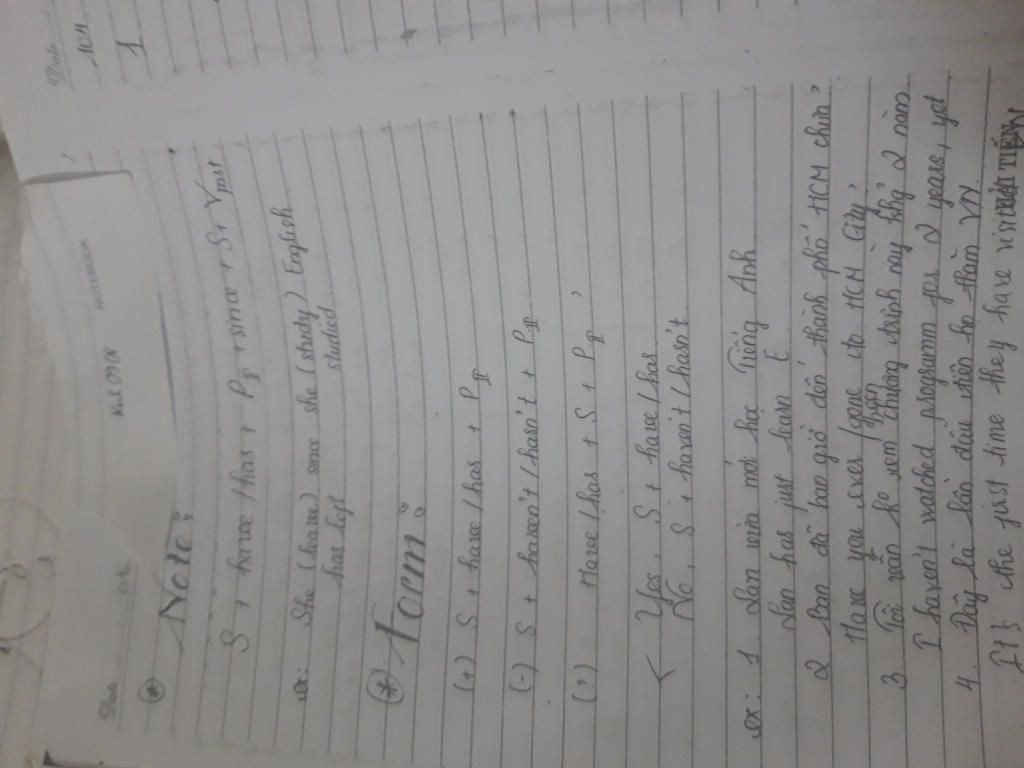 Date
NOTEBOOK
* Note:
S + have / has + PII + since + S + Vpast
ex: She (leave) since she (study) English
has left studied
* Form:
(+) S + have / has + PII
(-) S + haven't / hasn't + PII
(?) Have / has + S + PII ?
< Yes, S + have / has
No, S + haven't / hasn't.
ex: 1. Lan vừa mới học Tiếng Anh
Lan has just learn E
2 Bạn đã bao giờ đến thành phố HCM chưa?
Have you ever / gone to HCM City?
been
3. Tôi vẫn ko xem chương trình này khi 2 năm
I haven't watched programm for 2 years, yet
4. Đây là lần đầu tiên họ thăm VN
It's the first time they have visit
Date
1